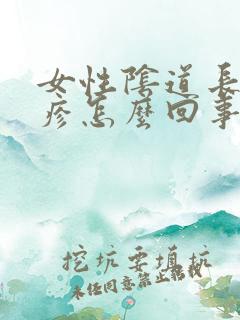 女性陰道長
疹怎麼回事
挖坑要填坑
未经同意禁止转载